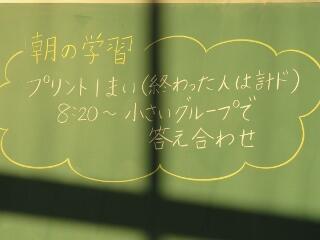 朝の学習
プリント1まい(終わった人は計ド)
8:20~小さいグループで
答え合わせ